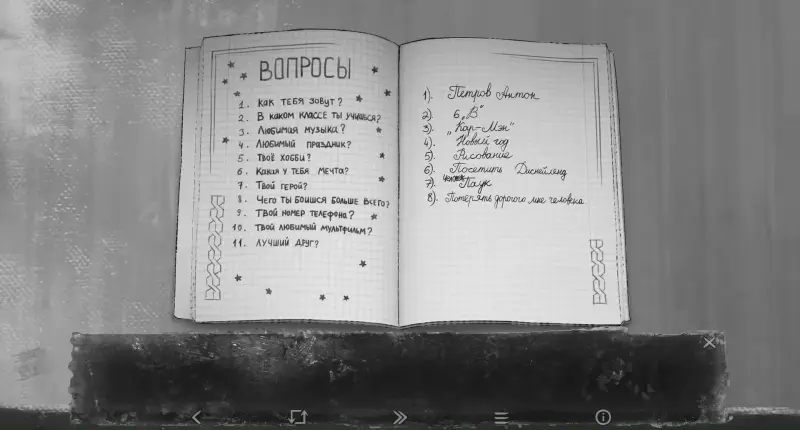 ВОПРОСЫ
1. Как тебя зовут?
2. В каком классе ты учишься?
3. Любимая музыка?
4. Любимый праздник?
5. Твоё хобби?
6. Какая у тебя мечта?
7. Твой герой?
8. Чего ты боишся больше всего?
9. Твой номер телефона?
10. Твой любимый мультфильм?
11. Лучший друг?
1). Петров Антон
2). 6 „В"
3). „Кар-Мэн"
4). Новый год
5). Рисование
6). Посетить Диснейленд
7). Человек Паук
8). Потерять дорогого мне человека